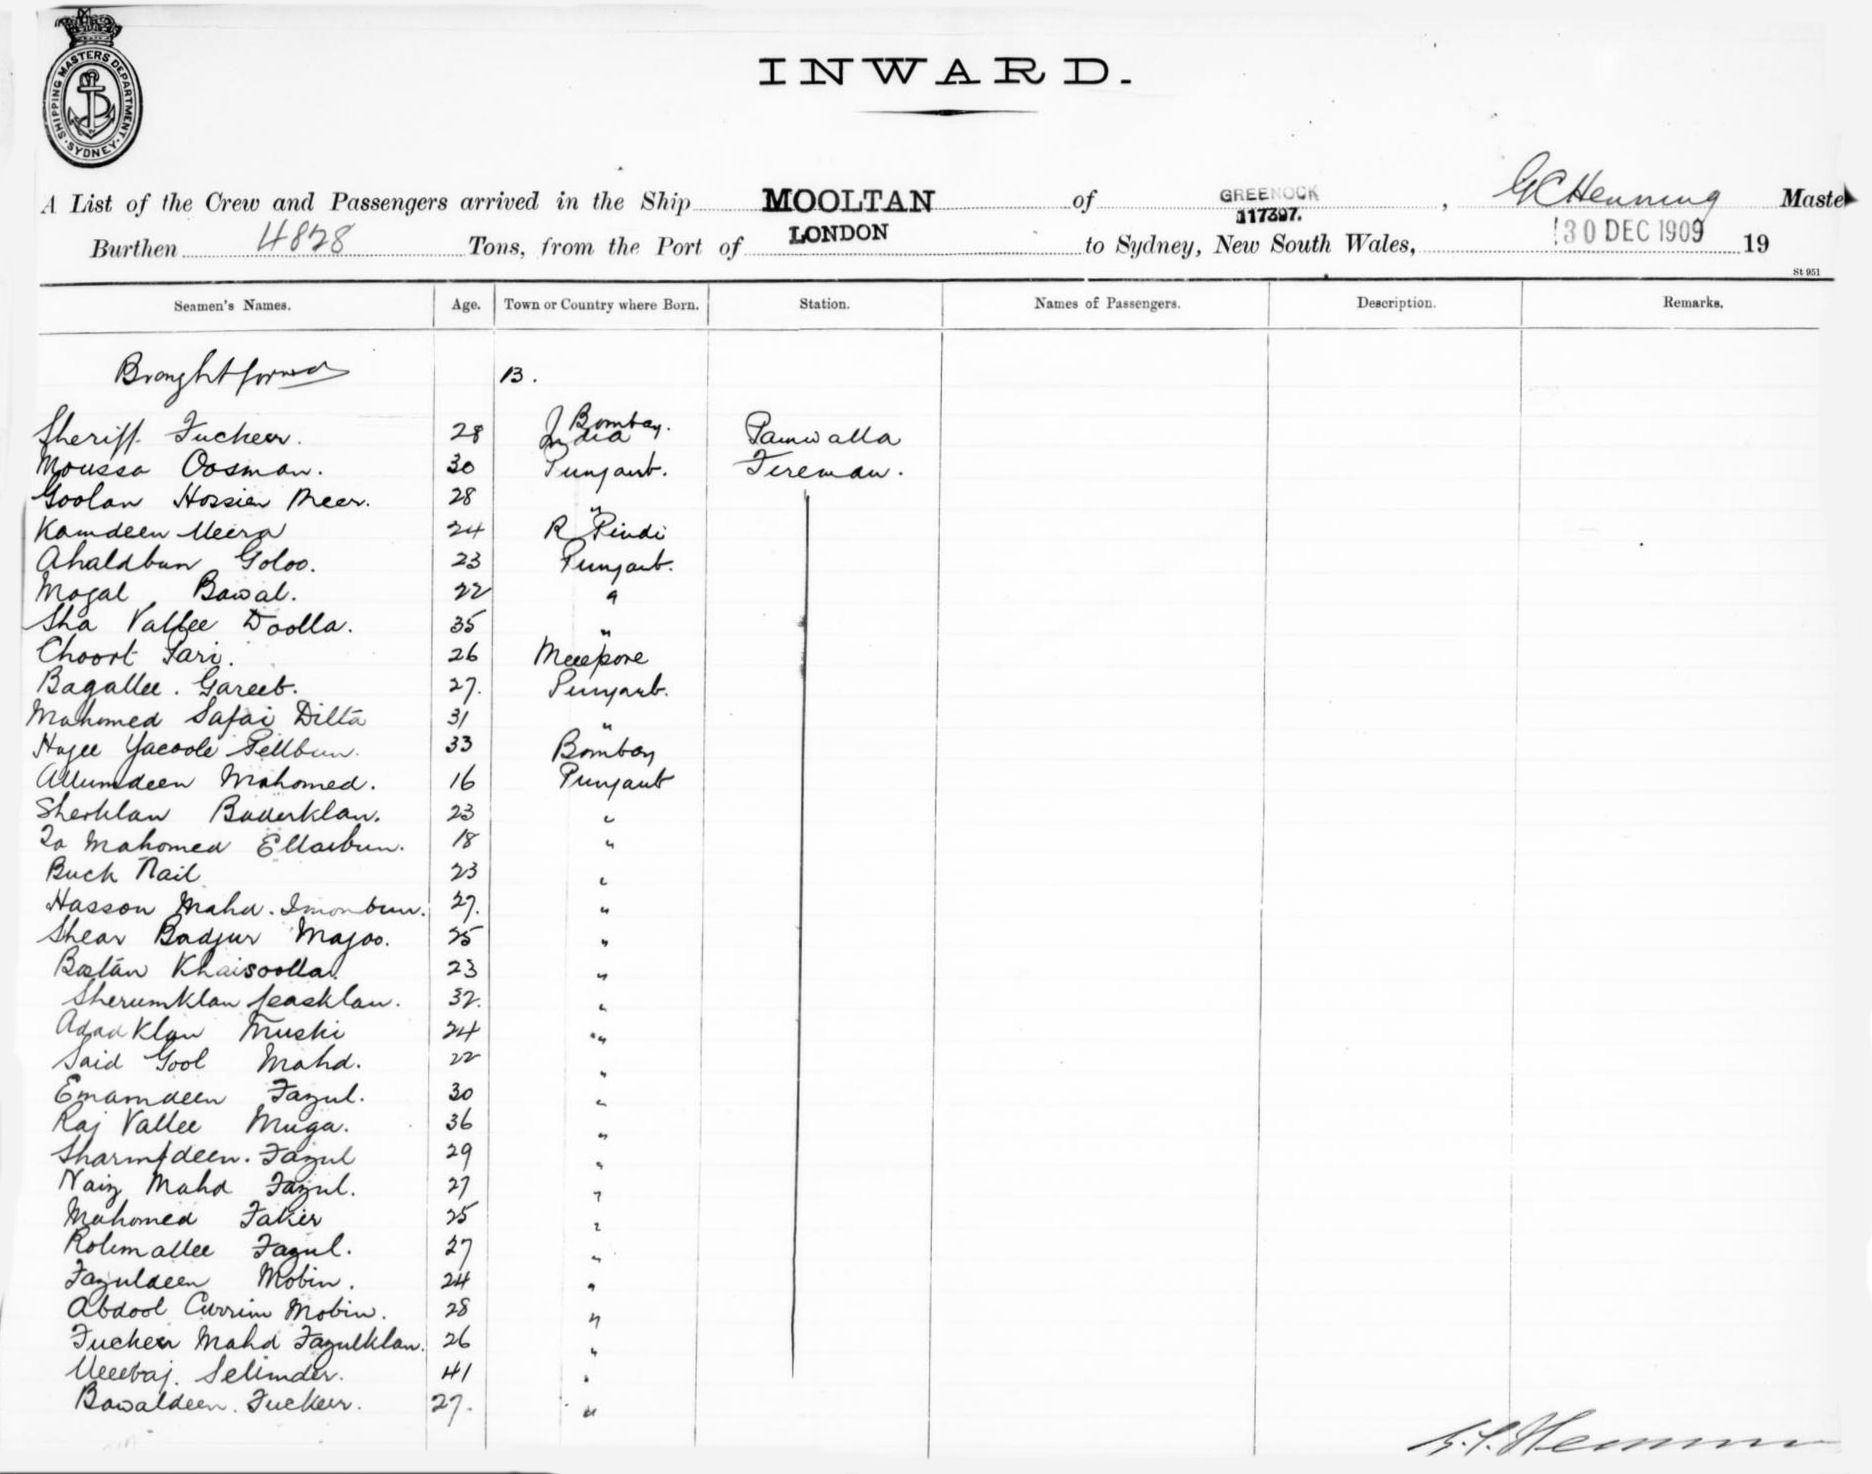 SHIPPING MASTERS DEPARTMENT
SYDNEY
INWARD.
A List of the Crew and Passengers arrived in the Ship MOOLTAN of GREENOCK, G C Henning Maste
117397.
Burthen 4828 Tons, from the Port of LONDON to Sydney, New South Wales, 30 DEC 1909 19
St 951
Seamen's Names. Age. Town or Country where Born. Station. Names of Passengers. Description. Remarks.
Brought forward B.
Sheriff Fucheer. 28 Bombay. India
Moussa Oosman. 30 Punjaub. Fireman.
Goolan Hossien Meer. 28 "
Kamdeen Meera 24 R Pindi
Ahaldbun Goloo. 23 Punjaub.
Mogal Bawal. 22 "
Sha Vallee Doolla. 35 "
Choort Fari. 26
Bagallee. Gareeb. 27. Punjaub.
Mahomed Safai Ditta 31 "
Hajee Yacoole 33 Bombay
Allumdeen Mahomed. 16 Punjaub
Sherklan Baderklan. 23 "
Mahomed Ellaibun. 18 "
Buck Nail 23 "
Hasson Mahd. Imonbun. 27. "
Shear Badjur Majoo. 25 "
Bostan Khaisoolla. 23 "
Sherumklan 32. "
Adad Klan Muski 24 "
Said Gool Mahd. 22 "
Emamdeen Fazul. 30 "
Raj Vallee Muga. 36 "
Fazul 29 "
Naiz Mahd Fazul. 27 "
Mahomed Fakir 25 "
Rohmallee Fazul. 27 "
Fazuldeen Mobin. 24 "
Abdool Currim Mobin. 28 "
Fucheer Mahd Fazulklan. 26 "
Selimder. 41 "
Bawaldeen. Fuckeer. 27. "